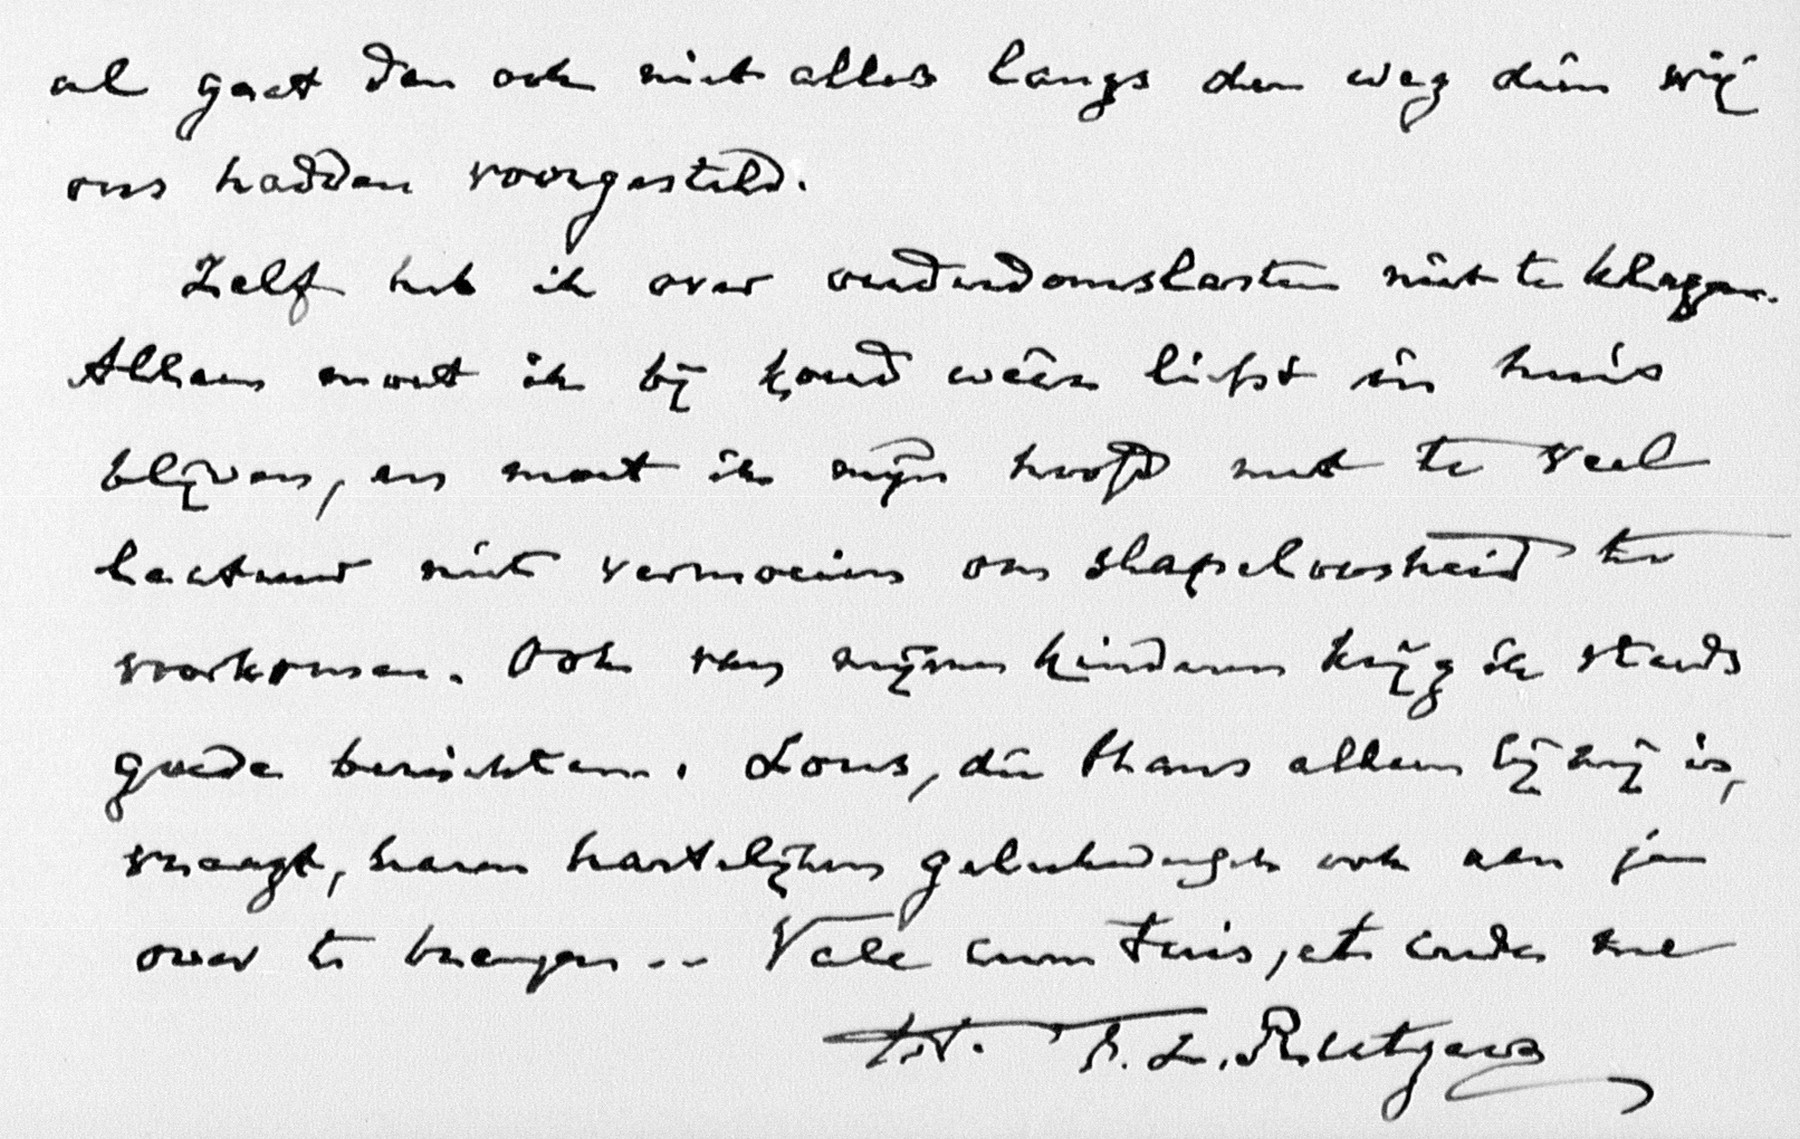 al gaat dan ook niet alles langs den weg dien wij
ons hadden voorgesteld.
Zelf heb ik over ouderdomslasten niet te klagen.
Alleen moet ik bij koud weêr liefst in huis
blijven, en moet ik mijn hoofd met te veel
lectuur niet vermoeien om slapeloosheid te
voorkomen. Ook van mijne kinderen krijg ik steeds
goede berichten. Lous, die thans alleen bij mij is,
vraagt, haren hartelijken gelukwensch ook aan je
over te brengen. Vale cum tuis, et
t.t. F. L. Rutgers